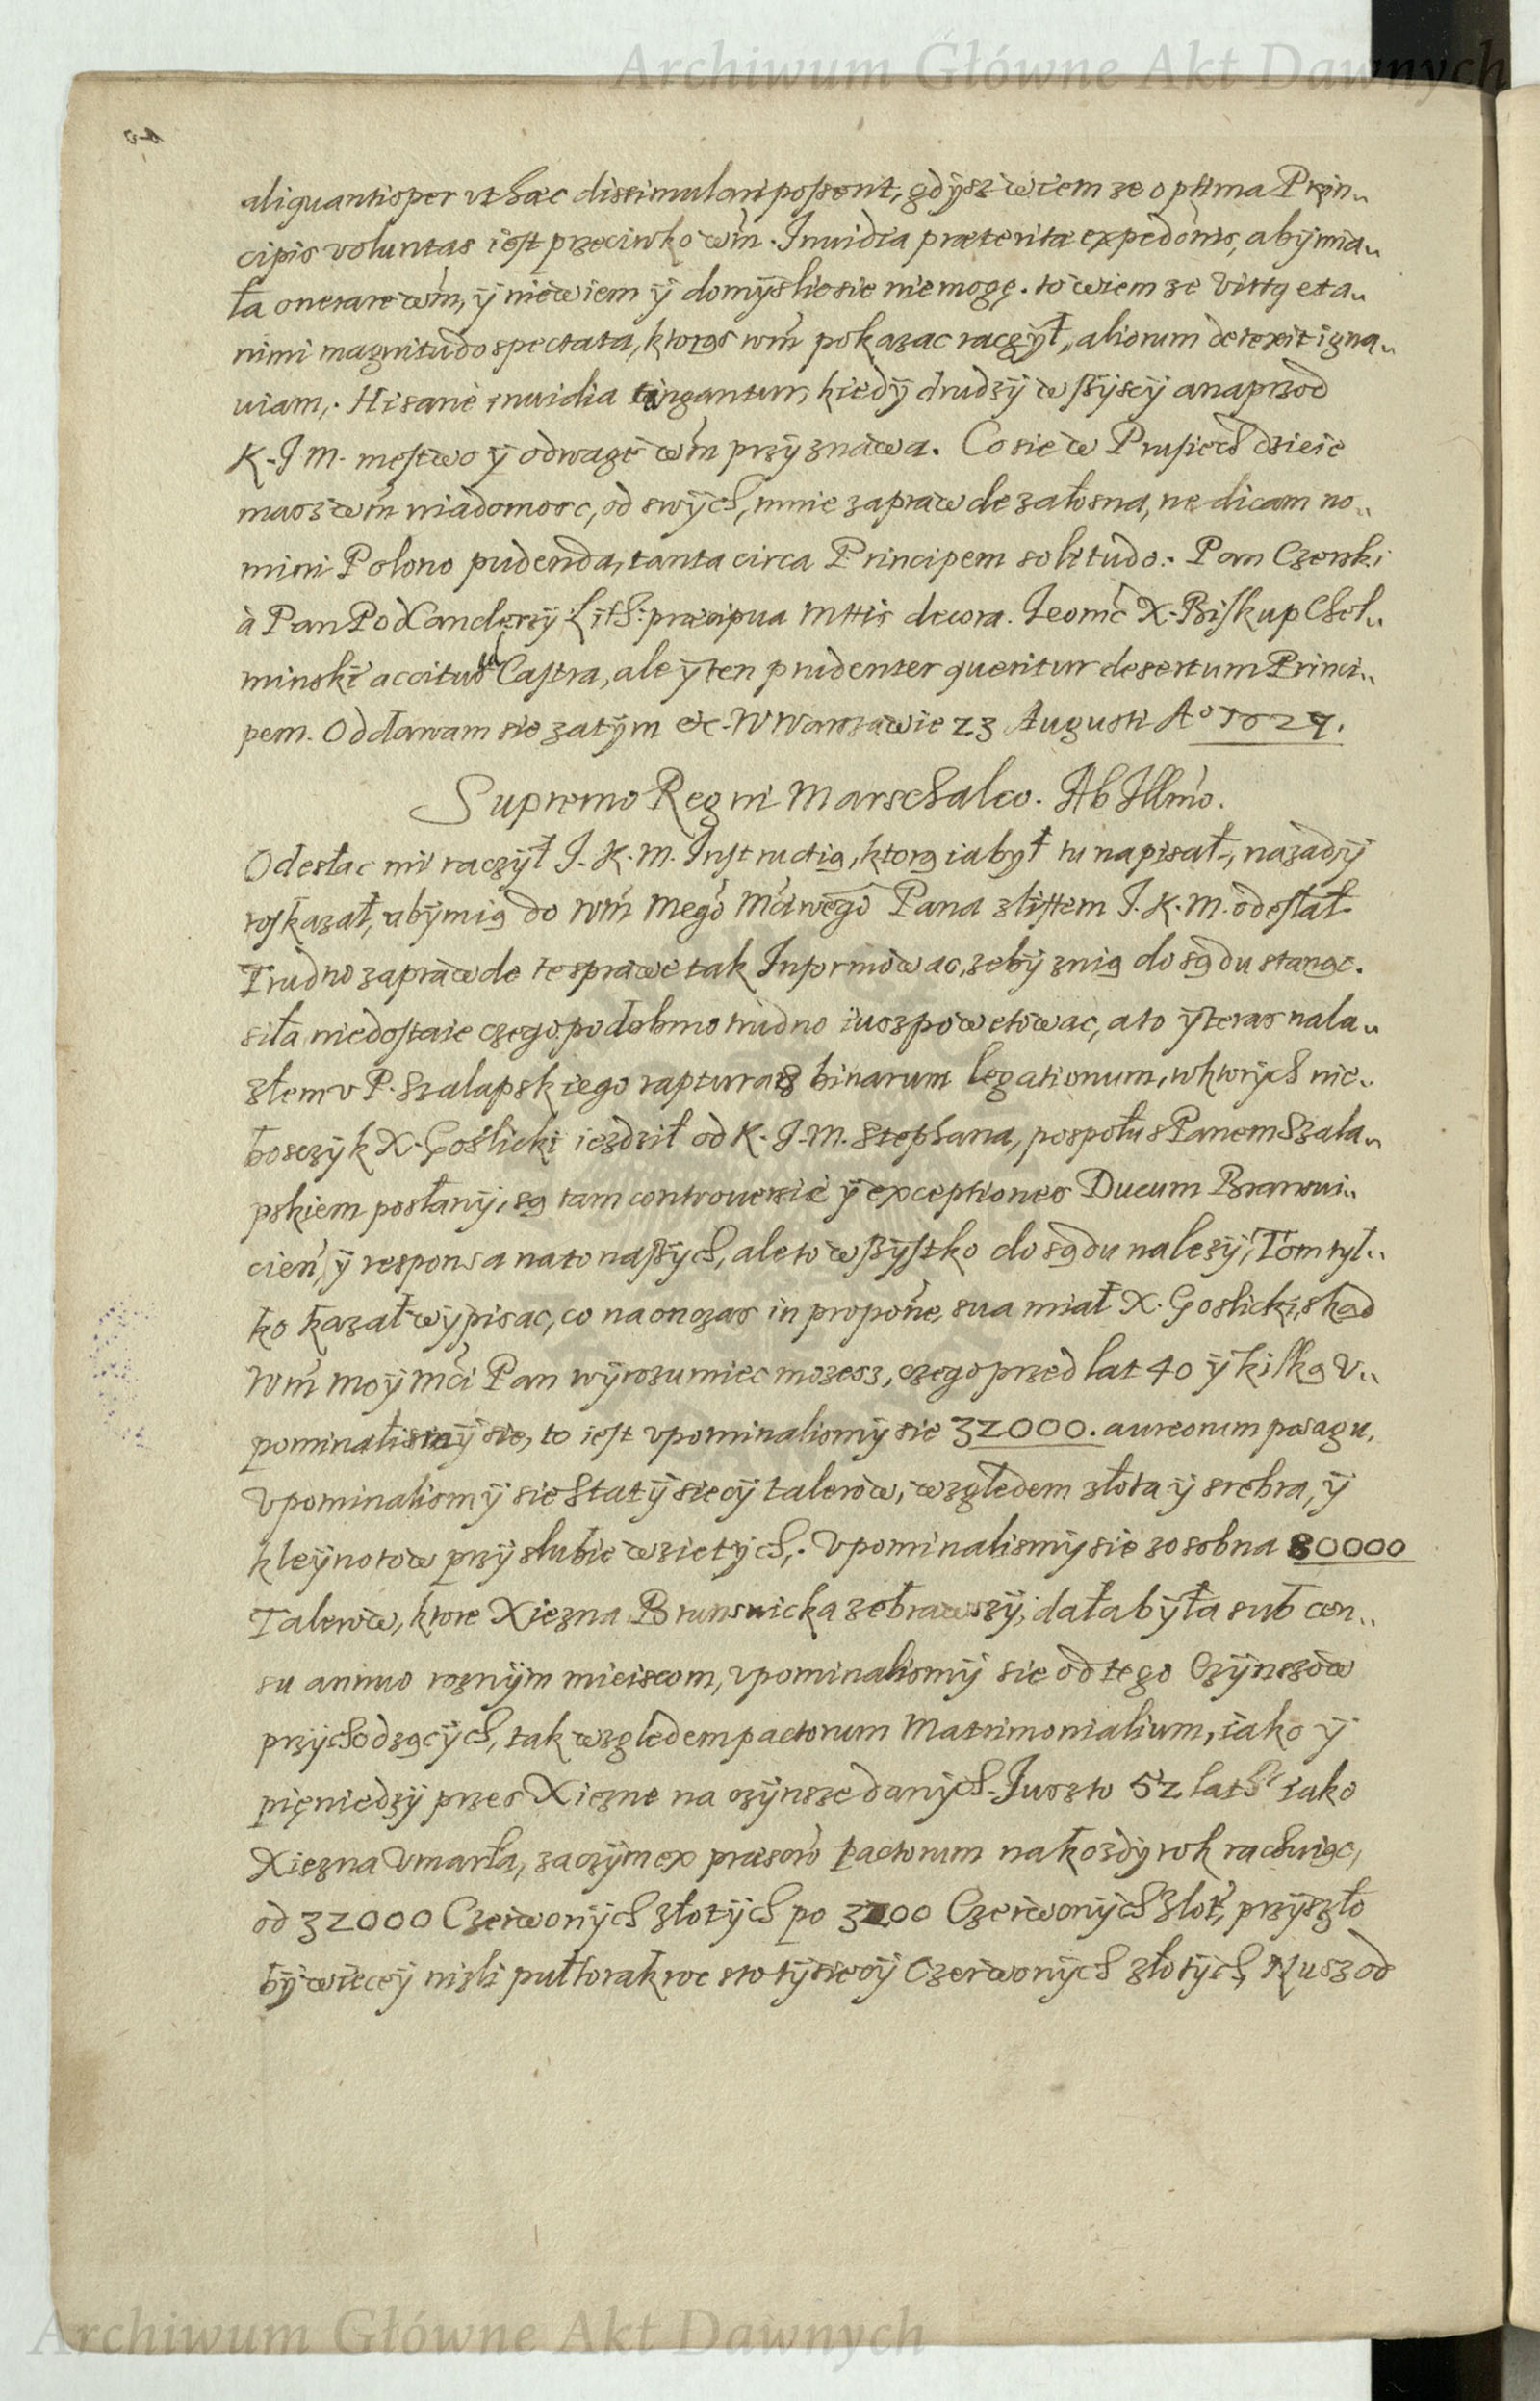 Archiwum Główne Akt Dawnych
aliquantisper vt haec dissimulari possent, gdysz wiem ze optima Prin„
cipis voluntas iest przeciwko wm̃. Inuidia praeterita expedõnis, aby mia„
ła onerare wm̃, ÿ niewiem ÿ domyslic sie niemogę. to wiem ze virtq et a„
nimi magnitudo spectata, ktorąs wm̃ pokazac raczÿł, aliorum detexit igna„
uiam,. Hi sane inuidia tingantur, kiedÿ drudzÿ wszÿscÿ anaprzod
K. J M. męstwo ÿ odwagę wm̃ przÿznawa. Co sie w Prusiech dzieie
masz wm̃ wiadomosc, od swÿch, mnie zaprawde załosna, ne dicam no„
mini Polono pudenda, tanta circa Principem solitudo. Pan Czerski
à Pan PodCanclerzÿ Lith: praecipua Mttis decora. Jeomć X. Biskup Cheł„
minski accitus ad Castra, ale ÿ ten prudenter queritur desertum Princi„
pem. Oddawam sie zatÿm etc. W Warszawie 23 Augusti Aº 1627.
Supremo Regni Marschalco. Ab Illmo.
Odesłac mi raczÿł J. K. M. Instructią, ktorą iabÿł tu napisał, nazad ÿ
roskazał, abÿm ią do Wm̃ Mego Mciwego Pana z listtem J. K. M. odesłał
Trudno zaprawde te sprawe tak Informowac, zebÿ z nią do sądu stanąc.
siła niedostaie czego podobno trudno iusz powetowac, a to ÿ teras nala„
złem v P. Szalapskiego rapturas binarum legationum, w ktorÿch nie„
bosczÿk X. Goslicki iezdził od K. J. M. Stephana, pospołu s Panem Szala„
pskiem posłanÿ, są tam controuersie ÿ exceptiones Ducum Bransui„
cień, ÿ responsa na to naszÿch, ale to wszÿstko do sądu nalezÿ, Tom tÿl„
ko kazał wÿpisac, co na on czas in propone, sua miał X. Goslicki, skąd
Wm̃ moÿ Mći Pan wÿrozumiec mozesz, czego przed lat 40 ÿ kilką v„
pominalismÿ sie, to iest vpominalismÿ sie 32000. aureorum posagu,
vpominalismÿ sie Sta tÿsiecÿ talerow, wzgledem złota ÿ srebra, ÿ
kleÿnotow przÿ slubie wzietÿch,. Vpominalismÿ sie zosobna 80000
Talerow, ktore Xiezna Brunsuicka zebrawszÿ, dała bÿła sub cen„
su annuo roznÿm mieiscom, vpominalismÿ sie od tego Czÿnszow
przÿchodzącÿch, tak wzgledem pactorum Matrimonialium, iako ÿ
pięniedzÿ przes Xiezne na czÿnsze danÿch. Jusz to 52 lath iako
Xiezna vmarła, zaczÿm ex pactorum na kozdÿ rok rachuiąc,
od 32000 Czerwonÿch złotÿch po 3200 Czerwonÿch złot, przÿszło
bÿ wiecÿ nizli pułtorakroc sto tÿsiecÿ Czerwonÿch złotÿch, Nusz od
Archiwum Główne Akt Dawnych